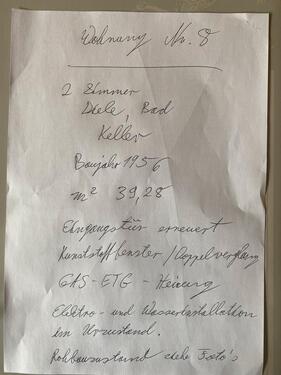 Wohnung Nr. 8
2 Zimmer
Diele, Bad
Keller
Baujahr 1956
m² 39,28
Eingangstür erneuert
Kunststofffenster / Doppelverglasung
GAS-ETG-Heizung
Elektro- und Wasserinstallation
im Urzustand.
Rohbauzustand siehe Foto's